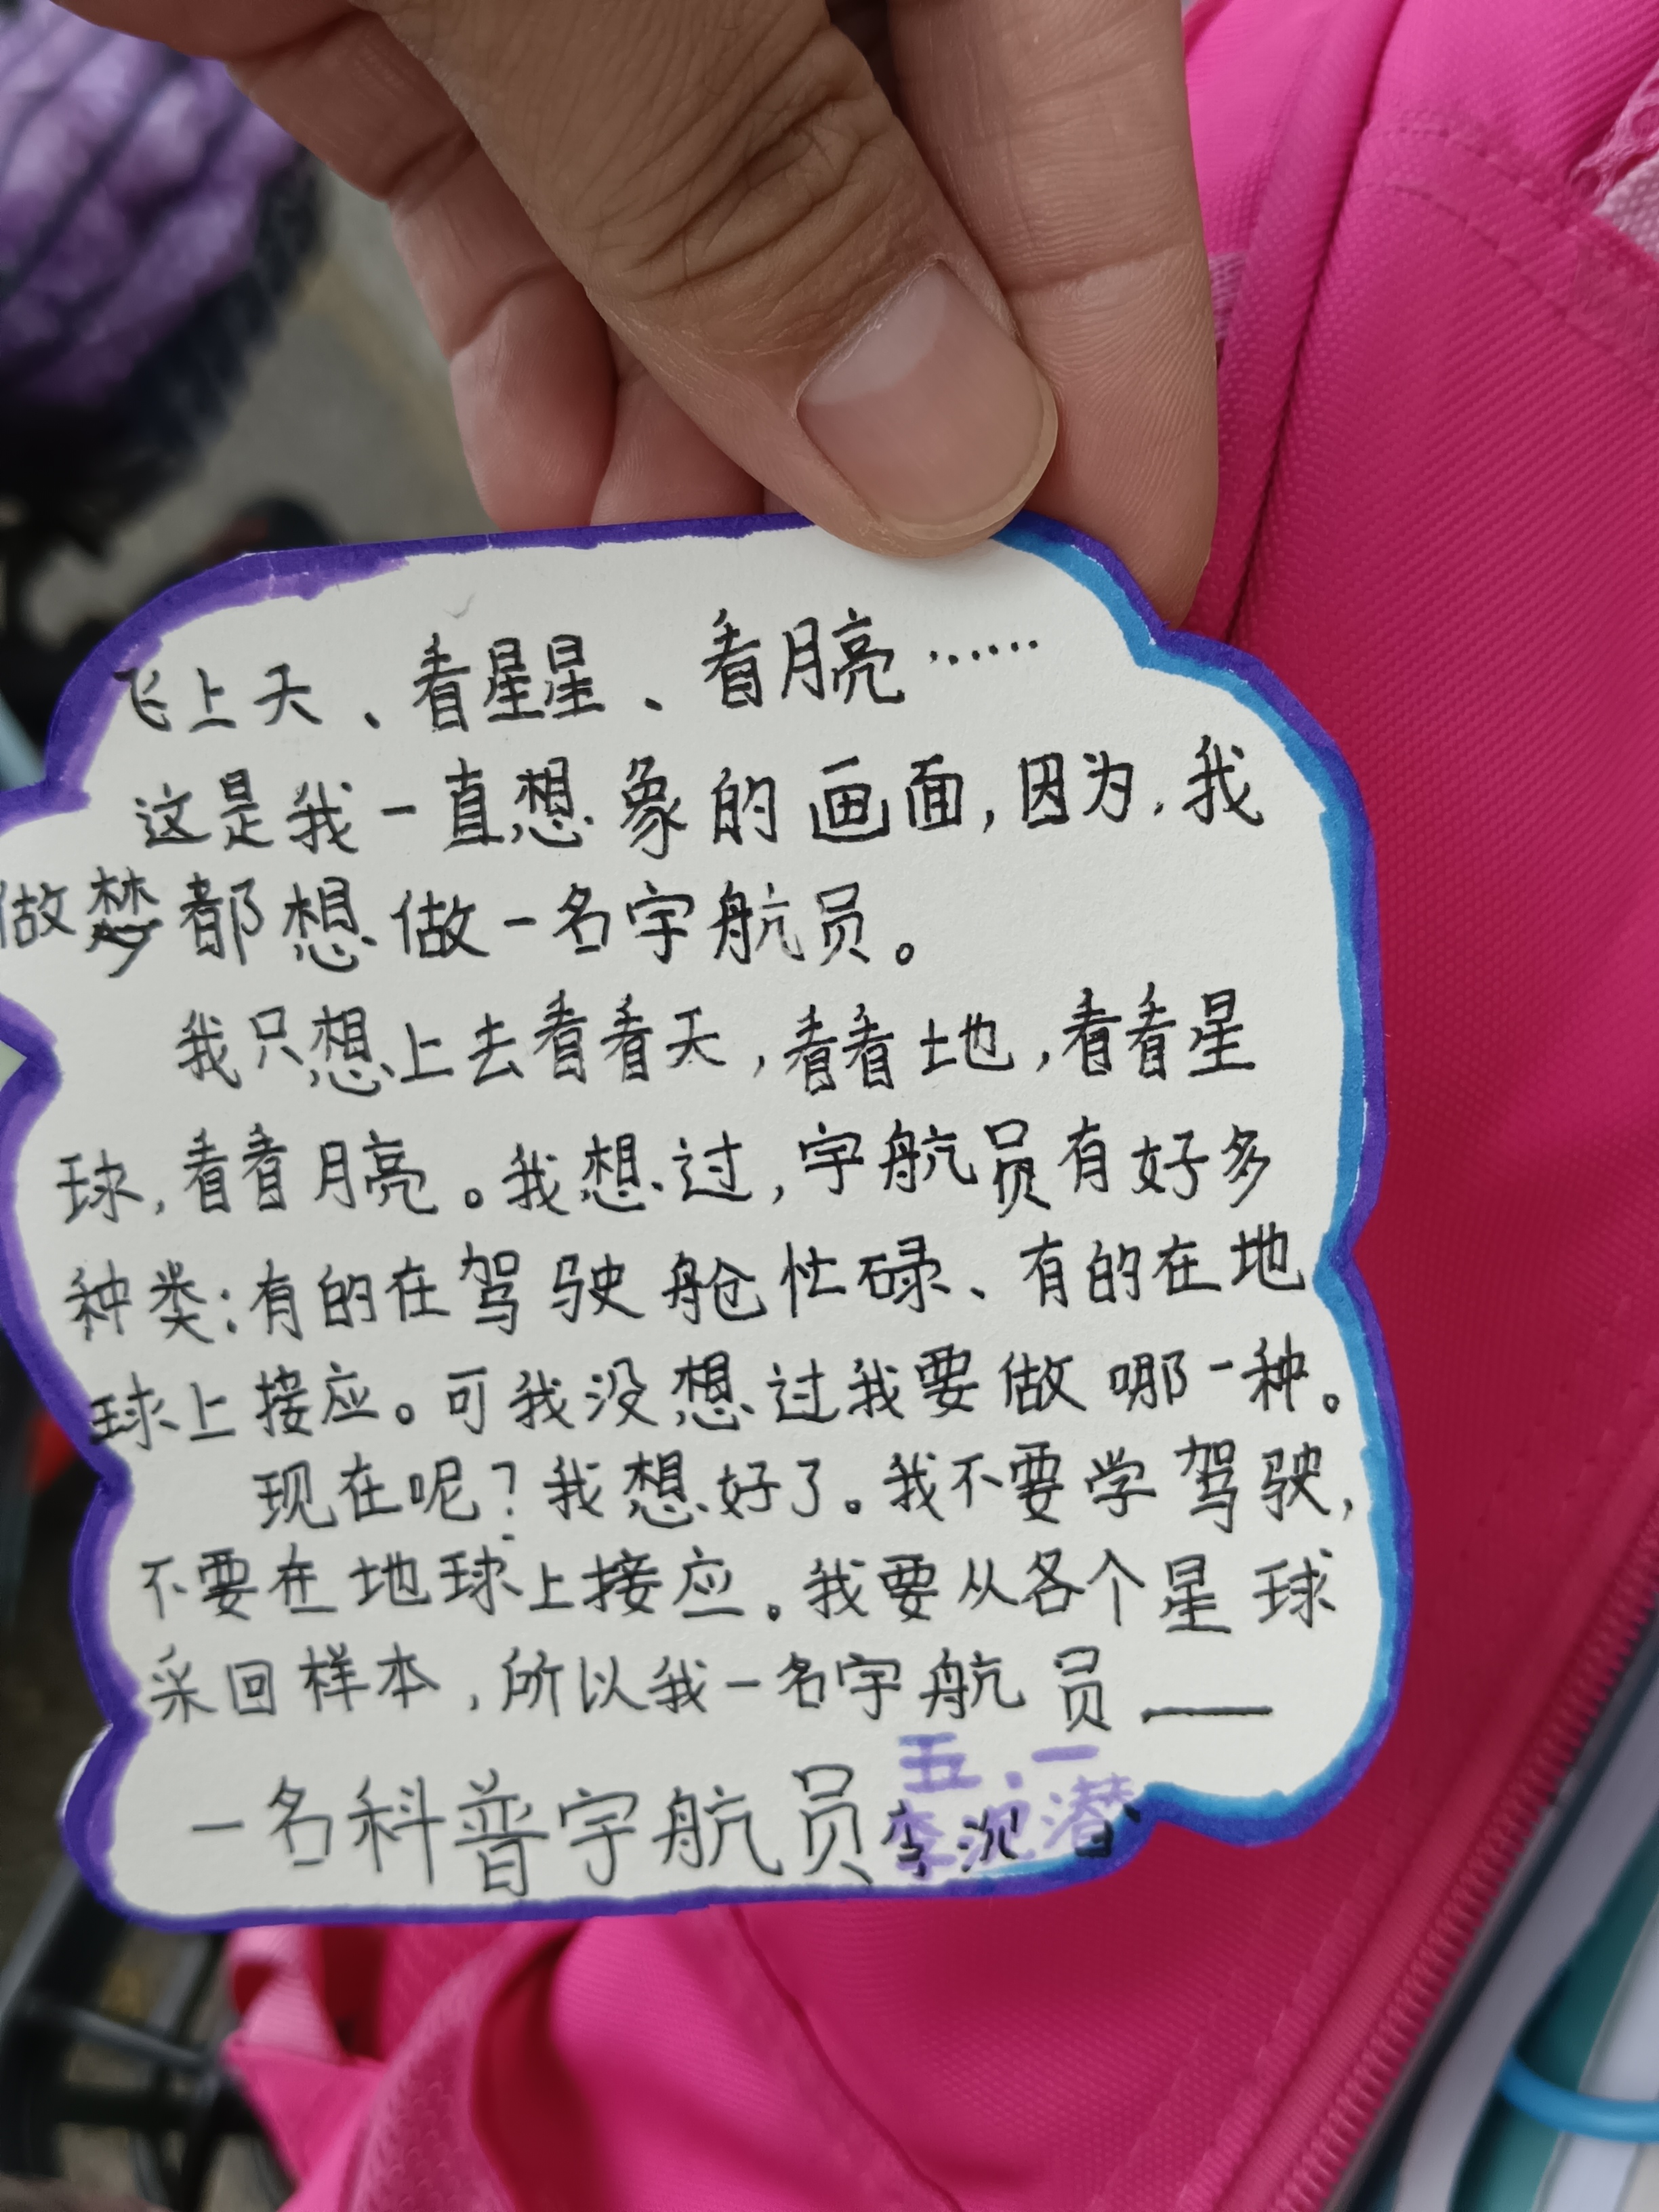 飞上天、看星星、看月亮……
这是我一直想象的画面,因为,我
做梦都想做一名宇航员。
我只想上去看看天,看看地,看看星
球,看看月亮。我想过,宇航员有好多
种类:有的在驾驶舱忙碌、有的在地
球上接应。可我没想过我要做哪一种。
现在呢?我想好了。我不要学驾驶,
不要在地球上接应。我要从各个星球
采回样本,所以我一名宇航员——
一名科普宇航员
五.一
李沉潜